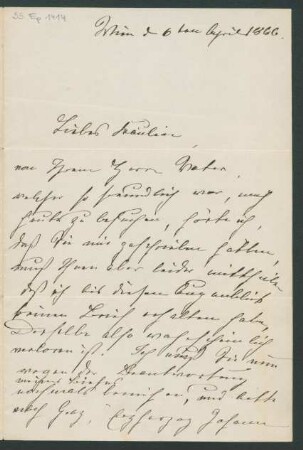 Wien d 6ten April 1866.
Liebes Fräulein
von Ihrem Herrn Vater,
welcher so freundlich war, mich
heute zu besuchen, hörte ich,
daß Sie mir geschrieben hätten,
muß Ihnen aber leider mittheilen
daß ich bis diesen Augenblick
keinen Brief erhalten habe,
derselbe also wahrscheinlich
verloren ist. Ich muß Sie nun
wegen der Beantwortung
meines Briefes
nochmals bemühen, und bitte
nach Graz, Erzherzog Johann